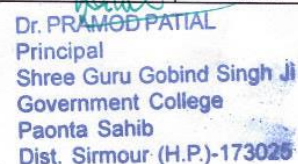 Dr. PRAMOD PATIAL
Principal
Shree Guru Gobind Singh Ji
Government College
Paonta Sahib
Dist. Sirmour (H.P.)-173025